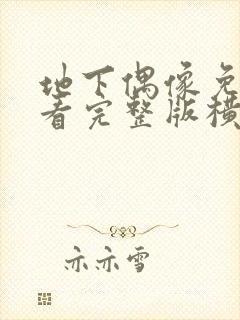 地下偶像免
看完整版横
亦亦雪